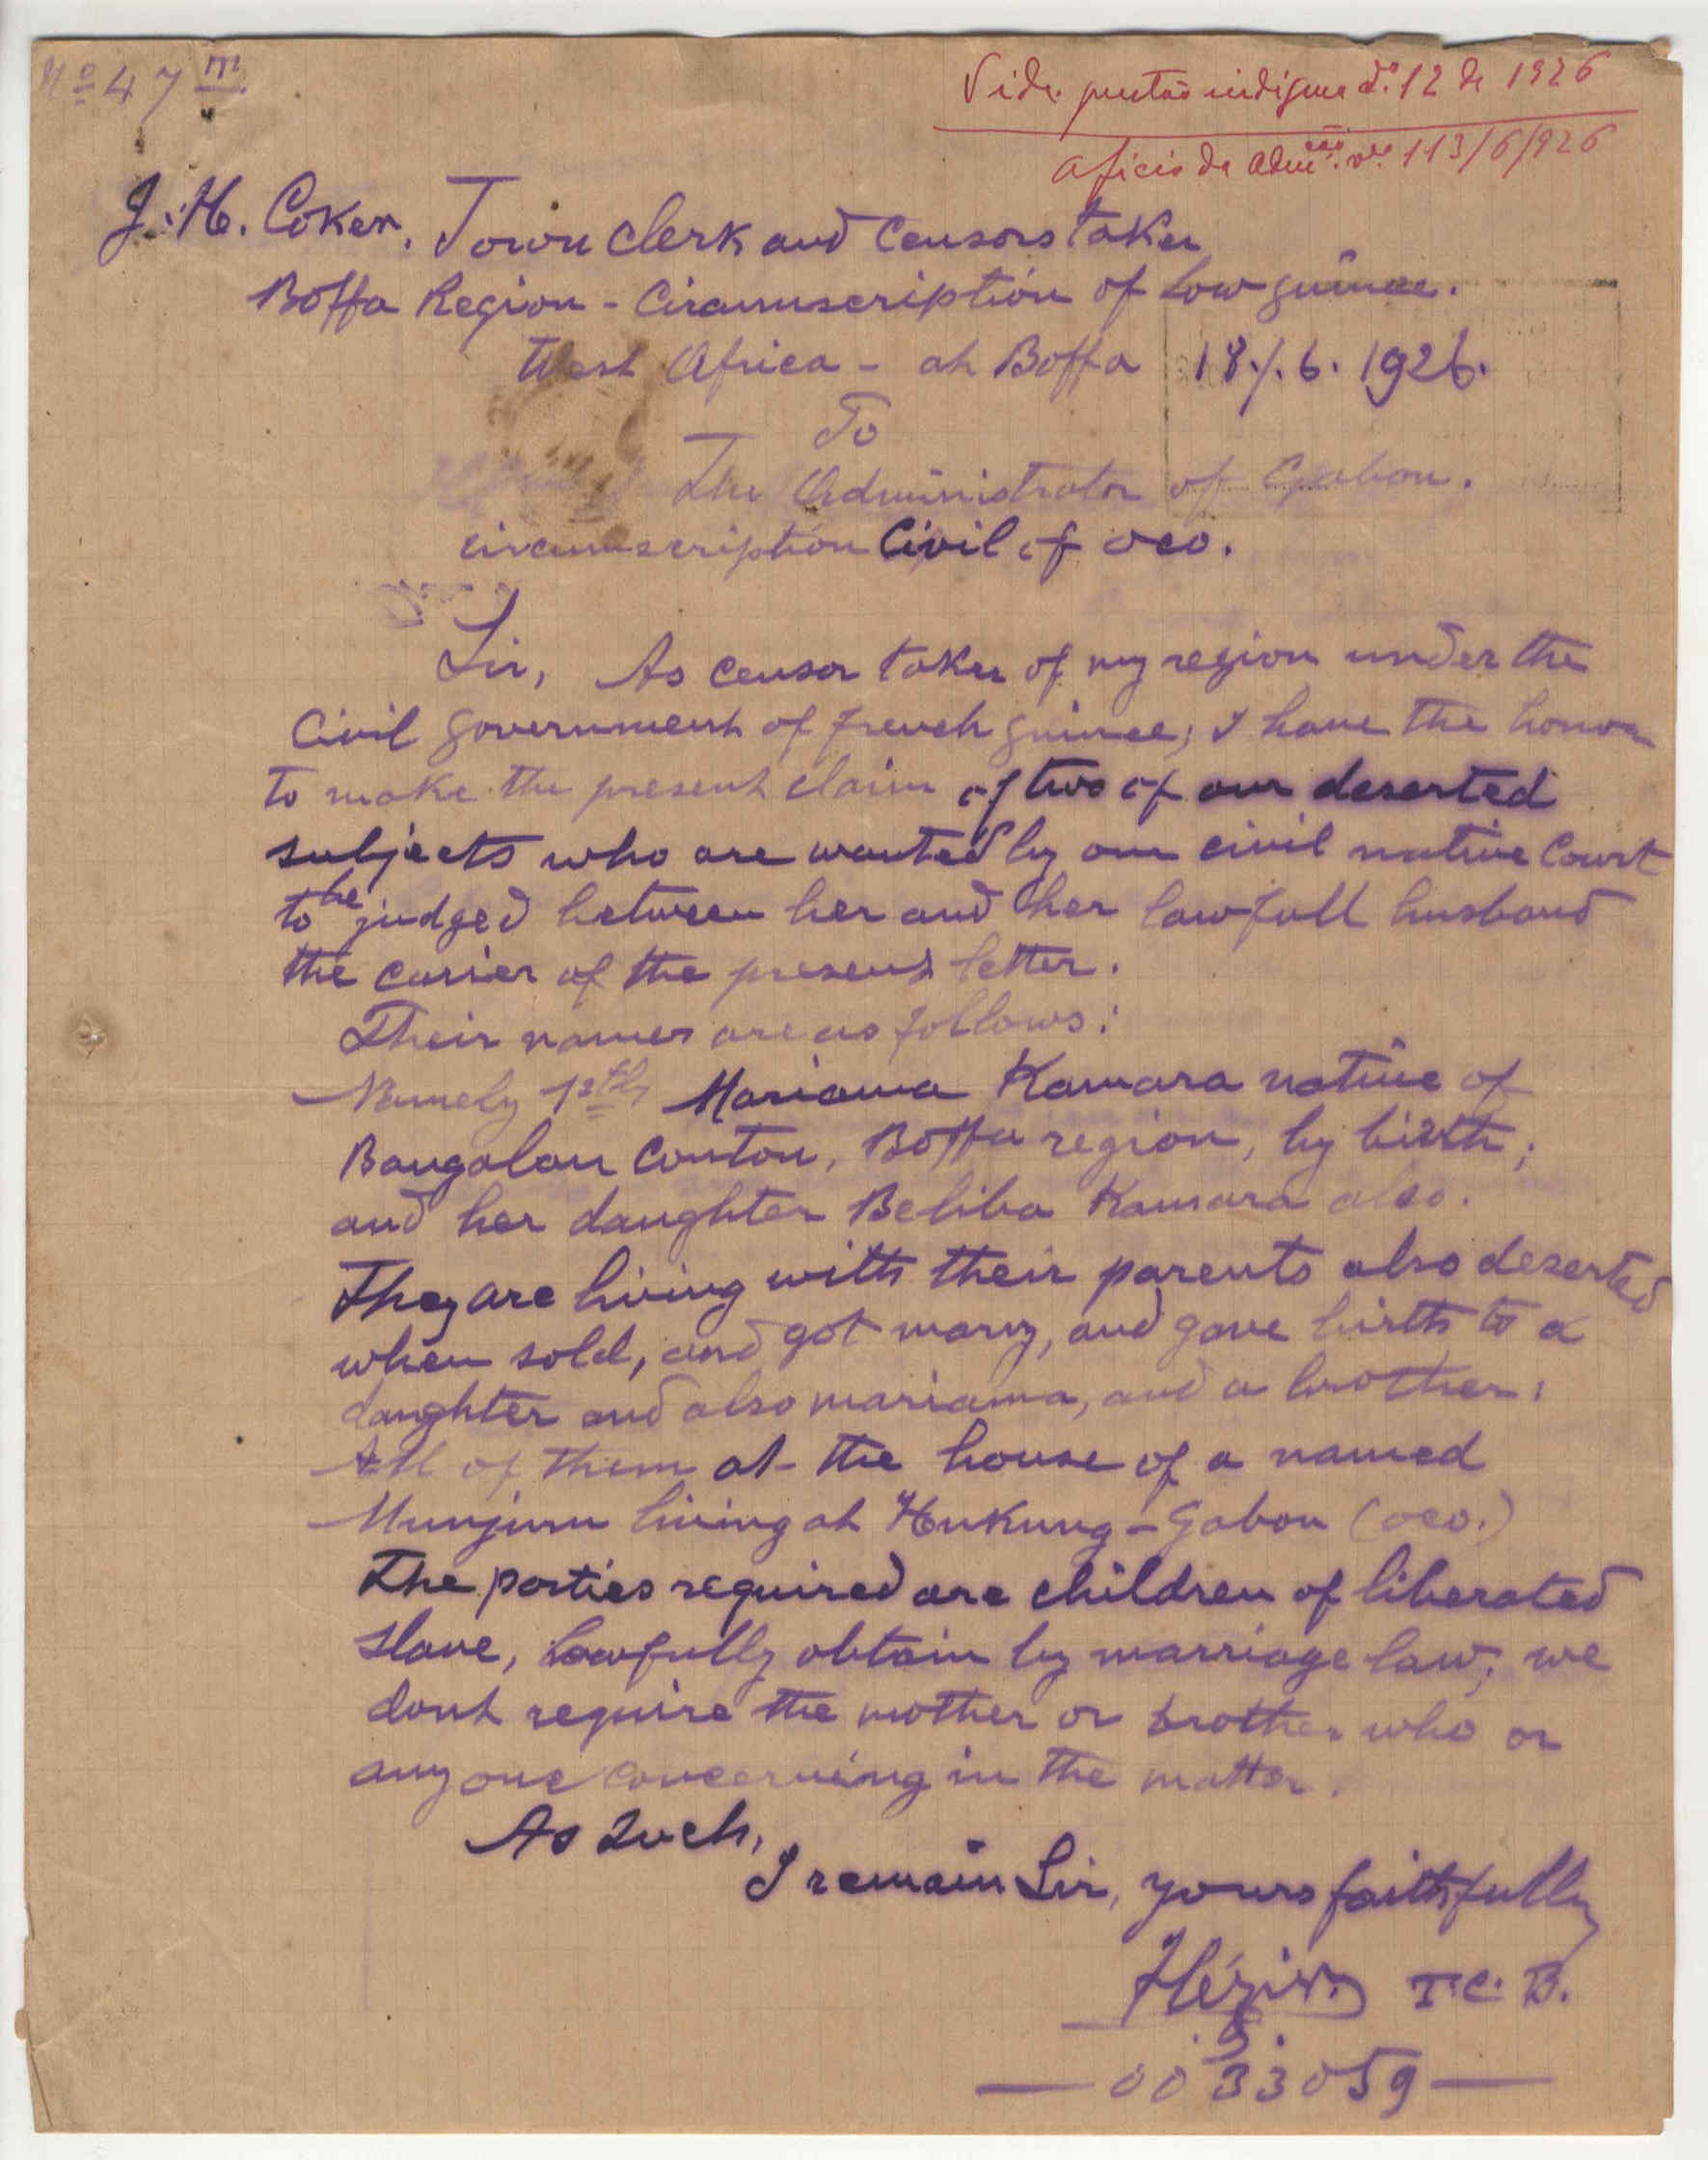 Nº 47 m
Vide questão indigena nº 12 de 1926
Oficio da Admção nº 113/6/926
J. H. Coker, Town Clerk and Censors taker
Boffa Region - Circumscription of Low guinee.
West Africa - at Boffa 18./. 6. 1926.
To
The Administrator of Gabou.
circumscription Civil of oeo.
Sir, As censor taker of my region under the
Civil government of french guinee, I have the honor
to make the present claim of two of our deserted
subjects who are wanted by our civil native Court
to be judged between her and her lawfull husband
the carier of the present letter.
Their names are as follows:
Namely 1stly Mariama Kamara native of
Bangalan Conton, Boffa region, by birth;
and her daughter Beliba Kamara also.
They are living with their parents also deserted
when sold, and got mary, and gave birth to a
daughter and also mariama, and a brother:
All of them at the house of a named
Munjuru living at Hukung - Gabou (oeo.)
The parties required are children of liberated
slave, lawfully obtain by marriage law; we
dont require the mother or brother who or
any one concerning in the matter.
As Such,
I remain Sir, yours faithfully
T. C. B.
— 00 33059 —